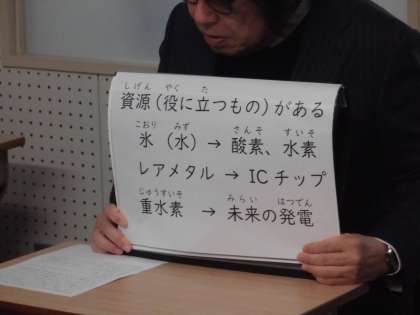 しげん やく た
資源(役に立つもの)がある
こおり みず さんそ すいそ
氷(水)→ 酸素、水素
レアメタル → ICチップ
じゅうすいそ みらい はつでん
重水素 → 未来の発電